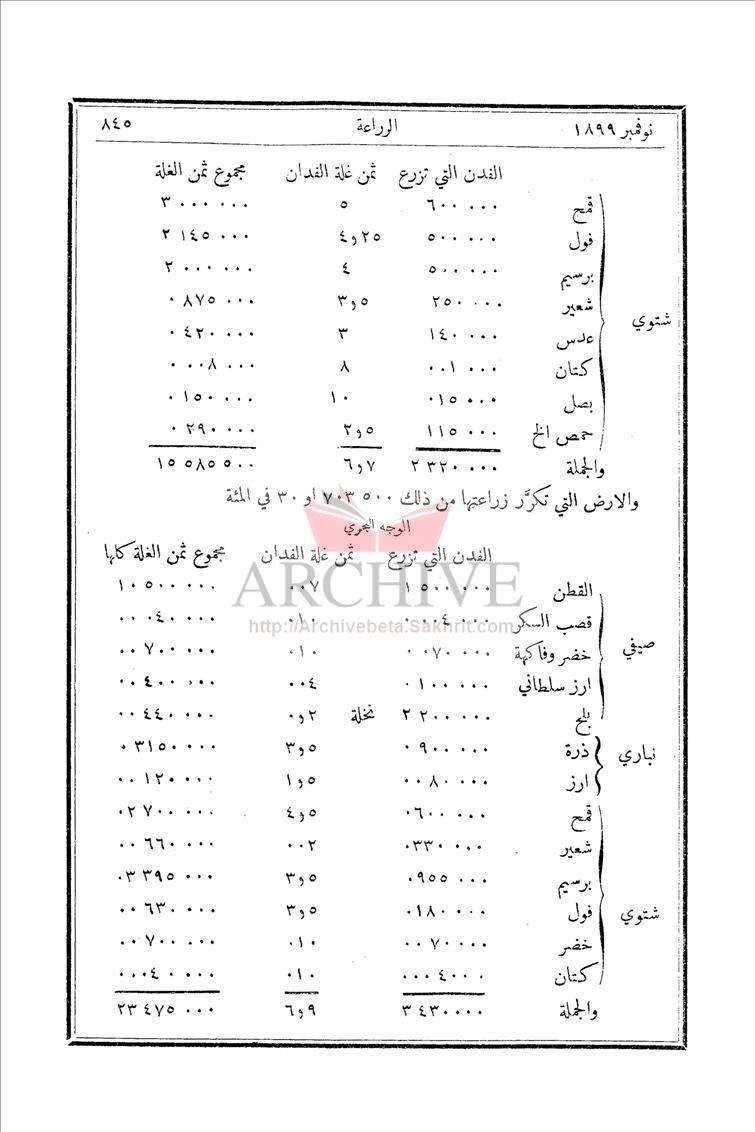 نوفمبر ١٨٩٩ الزراعة ٨٤٥
الفدن التي تزرع ثمن غلة الفدان مجموع ثمن الغلة
قمح ٦٠٠ ٠٠٠ ٥ ٣ ٠٠٠ ٠٠٠
فول ٥٠٠ ٠٠٠ ٢٥و٤ ٢ ١٤٥ ٠٠٠
برسيم ٥٠٠ ٠٠٠ ٤ ٢ ٠٠٠ ٠٠٠
شعير ٢٥٠ ٠٠٠ ٥و٣ ٠ ٨٧٥ ٠٠٠
شتوي
عدس ١٤٠ ٠٠٠ ٣ ٠ ٤٢٠ ٠٠٠
كتان ٠٠١ ٠٠٠ ٨ ٠ ٠٠٨ ٠٠٠
بصل ٠١٥ ٠٠٠ ١٠ ٠ ١٥٠ ٠٠٠
حمص الخ ١١٥ ٠٠٠ ٥و٢ ٠ ٢٩٠ ٠٠٠
والجملة ٢ ٣٢٠ ٠٠٠ ٧و٦ ١٥ ٥٨٥ ٥٠٠
والارض التي تكرَّر زراعتها من ذلك ٧٠٣ ٥٠٠ او ٣٠ في المئة
الوجه البحري
الفدن التي تزرع ثمن غلة الفدان مجموع ثمن الغلة كلها
القطن ١ ٥٠٠ ٠٠٠ ٠٠٧ ١٠ ٥٠٠ ٠٠٠
ARCHIVE
قصب السكر ٠ ٠٠٤ ٠٠٠ ٠١٠ ٠٠ ٠٤٠ ٠٠٠
http://Archivebeta.Sakhrit.com
صيفي
خضر وفاكهة ٠ ٠٧٠ ٠٠٠ ٠١٠ ٠٠ ٧٠٠ ٠٠٠
ارز سلطاني ٠ ١٠٠ ٠٠٠ ٠٠٤ ٠٠ ٤٠٠ ٠٠٠
بلح ٢ ٢٠٠ ٠٠٠ نخلة ٢و٠ ٠٠ ٤٤٠ ٠٠٠
نباري
ذرة ٠ ٩٠٠ ٠٠٠ ٥و٣ ٠ ٣١٥٠ ٠٠٠
ارز ٠ ٠٨٠ ٠٠٠ ٥و١ ٠٠ ١٢٠ ٠٠٠
قمح ٠٦٠٠ ٠٠٠ ٥و٤ ٠٢ ٧٠٠ ٠٠٠
شعير ٠٣٣٠ ٠٠٠ ٠٠٢ ٠٠ ٦٦٠ ٠٠٠
برسيم ٠٩٥٥ ٠٠٠ ٥و٣ ٠٣ ٣٩٥ ٠٠٠
شتوي
فول ٠١٨٠ ٠٠٠ ٥و٣ ٠٠ ٦٣٠ ٠٠٠
خضر ٠٠٧٠ ٠٠٠ ٠١٠ ٠٠ ٧٠٠ ٠٠٠
كتان ٠٠٠٤ ٠٠٠ ٠١٠ ٠٠ ٠٤٠ ٠٠٠
والجملة ٣ ٤٣٠ ٠٠٠ ٩و٦ ٢٣ ٤٧٥ ٠٠٠